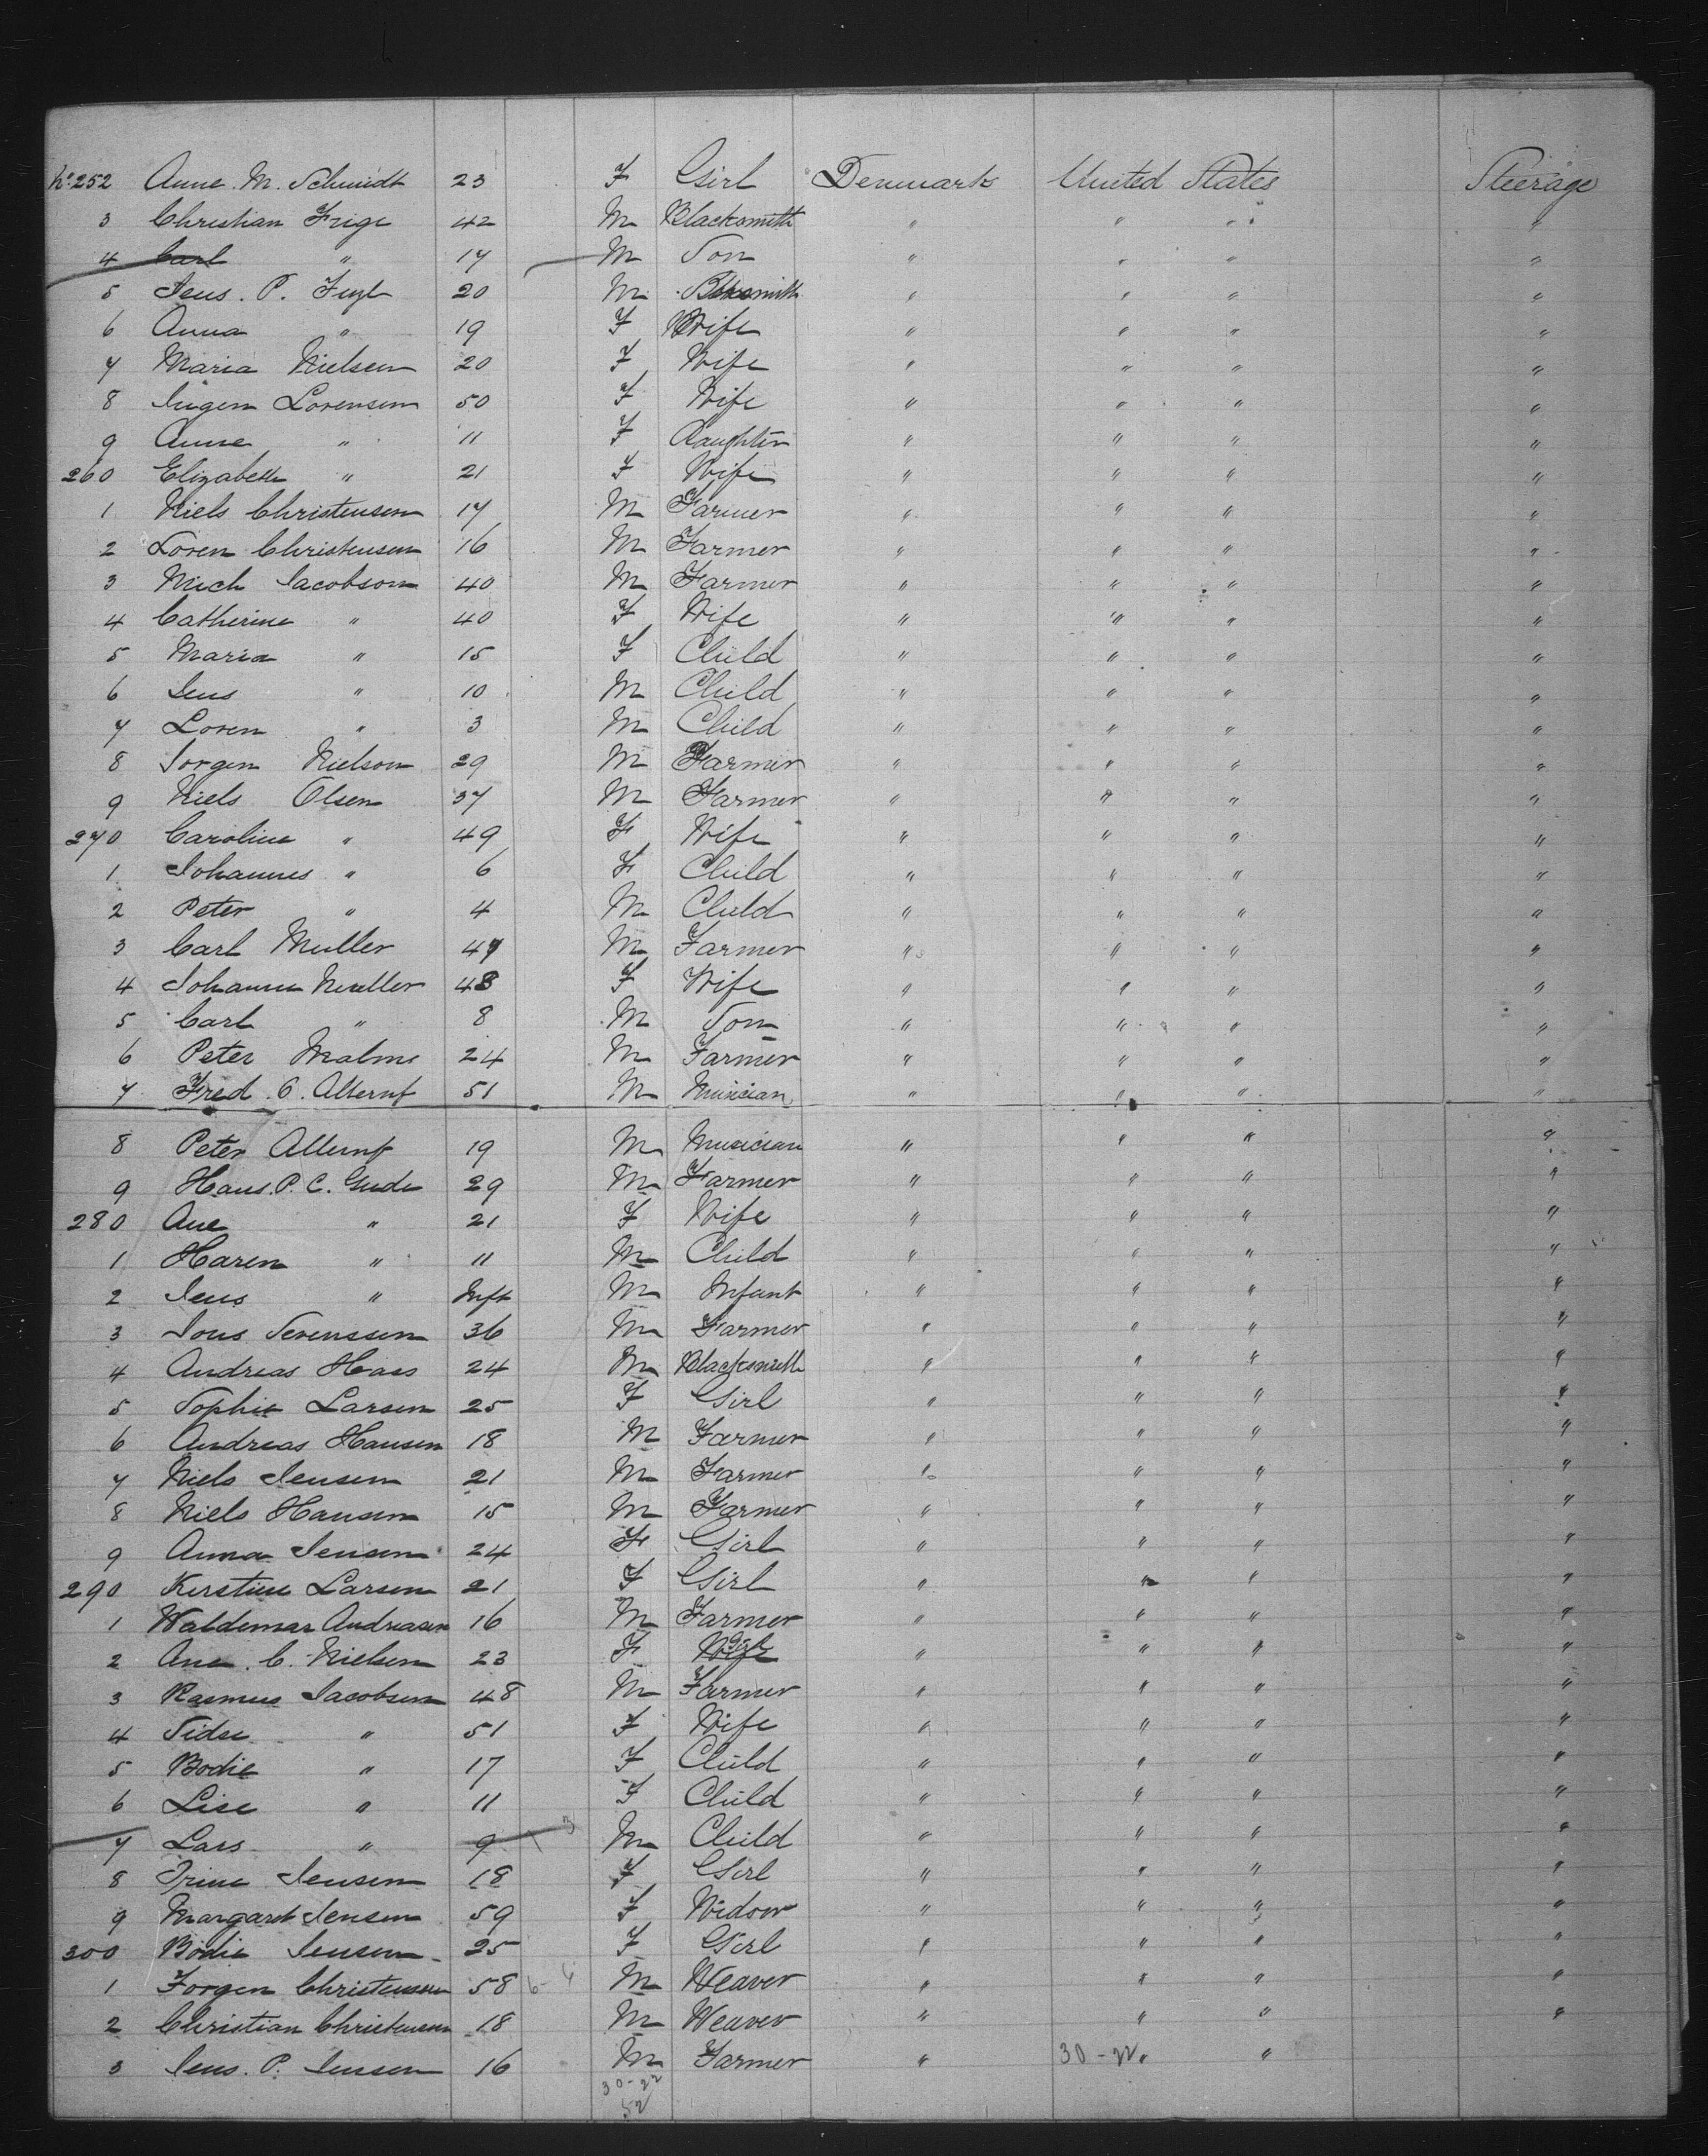 No. 252 Anne. M. Schmidt 23 F Girl Denmark United States Steerage
3 Christian Frige 42 M Blacksmith " " " "
4 Carl " 17 M Son " " " "
5 Jens. P. Fugl 20 M Blksmith " " " "
6 Anna " 19 F Wife " " " "
7 Maria Nielsen 20 F Wife " " " "
8 Lorensen 50 F Wife " " " "
9 Anne " 11 F Daughter " " " "
260 Elizabeth " 21 F Wife " " " "
1 Niels Christensen 17 M Farmer " " " "
2 Soren Christensen 16 M Farmer " " " "
3 Mich Jacobson 40 M Farmer " " " "
4 Catherine " 40 F Wife " " " "
5 Maria " 15 F Child " " " "
6 Jens " 10 M Child " " " "
7 Soren " 3 M Child " " " "
8 Jorgen Nielson 29 M Farmer " " " "
9 Niels Olsen 37 M Farmer " " " "
270 Caroline " 49 F Wife " " " "
1 Johannes " 6 F Child " " " "
2 Peter " 4 M Child " " " "
3 Carl Muller 47 M Farmer " " " "
4 Johanne Muller 48 F Wife " " " "
5 Carl " 8 M Son " " " "
6 Peter Malme 24 M Farmer " " " "
7 Fred. C. 51 M Musician " " " "
8 Peter 19 M Musician " " " "
9 Hans. P. C. Gude 29 M Farmer " " " "
280 Ane " 21 F Wife " " " "
1 Haren " 11 M Child " " " "
2 Jens " Inft M Infant " " " "
3 Jons Sorenssen 36 M Farmer " " " "
4 Andreas Haas 24 M Blacksmith " " " "
5 Sophie Larsen 25 F Girl " " " "
6 Andreas Hansen 18 M Farmer " " " "
7 Niels Jensen 21 M Farmer " " " "
8 Niels Hansen 15 M Farmer " " " "
9 Anna Jensen 24 F Girl " " " "
290 Kirstine Larsen 21 F Girl " " " "
1 Waldemar Andreasen 16 M Farmer " " " "
2 Ane. C. Nielsen 23 F Wife " " " "
3 Rasmus Jacobsen 48 M Farmer " " " "
4 Sidse " 51 F Wife " " " "
5 Bodie " 17 F Child " " " "
6 Lise " 11 F Child " " " "
7 Lars " 9 M Child " " " "
8 Trine Jensen 18 F Girl " " " "
9 Margaret Jensen 59 F Widow " " " "
300 Bodie Jensen 25 F Girl " " " "
1 Jorgen Christensen 58 M Weaver " " " "
2 Christian Christensen 18 M Weaver " " " "
3 Jens. P. Jensen 16 M Farmer " 30-22 " "
30-22
52